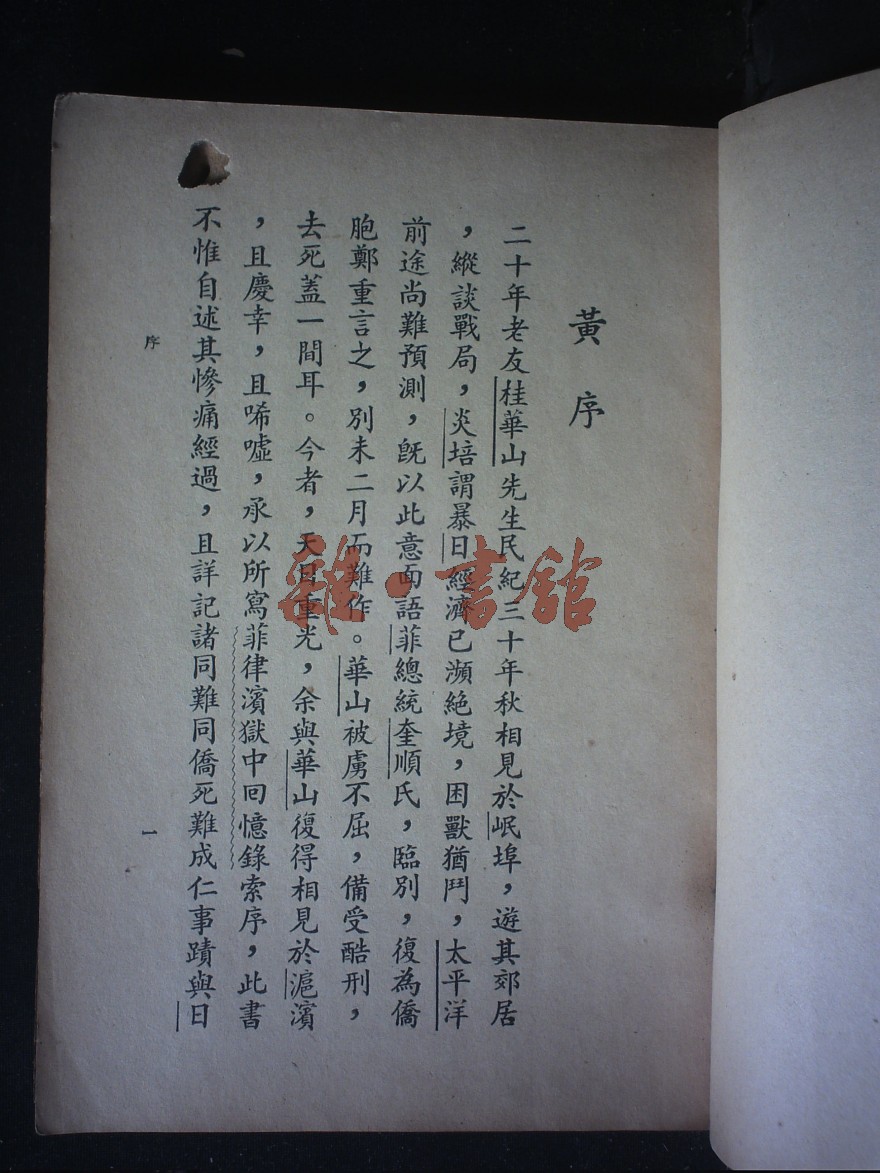 黃序
二十年老友桂華山先生民紀三十年秋相見於岷埠，遊其郊居
，縱談戰局，炎培謂暴日經濟已瀕絕境，困獸猶鬥，太平洋
前途尚難預測，既以此意面語菲總統奎順氏，臨別，復為僑
胞鄭重言之，別未二月而難作。華山被虜不屈，備受酷刑，
去死蓋一間耳。今者，天日重光，余與華山復得相見於滬濱
，且慶幸，且唏噓，承以所寫菲律濱獄中回憶錄索序，此書
不惟自述其慘痛經過，且詳記諸同難同僑死難成仁事蹟與日
序
一
雜·書館